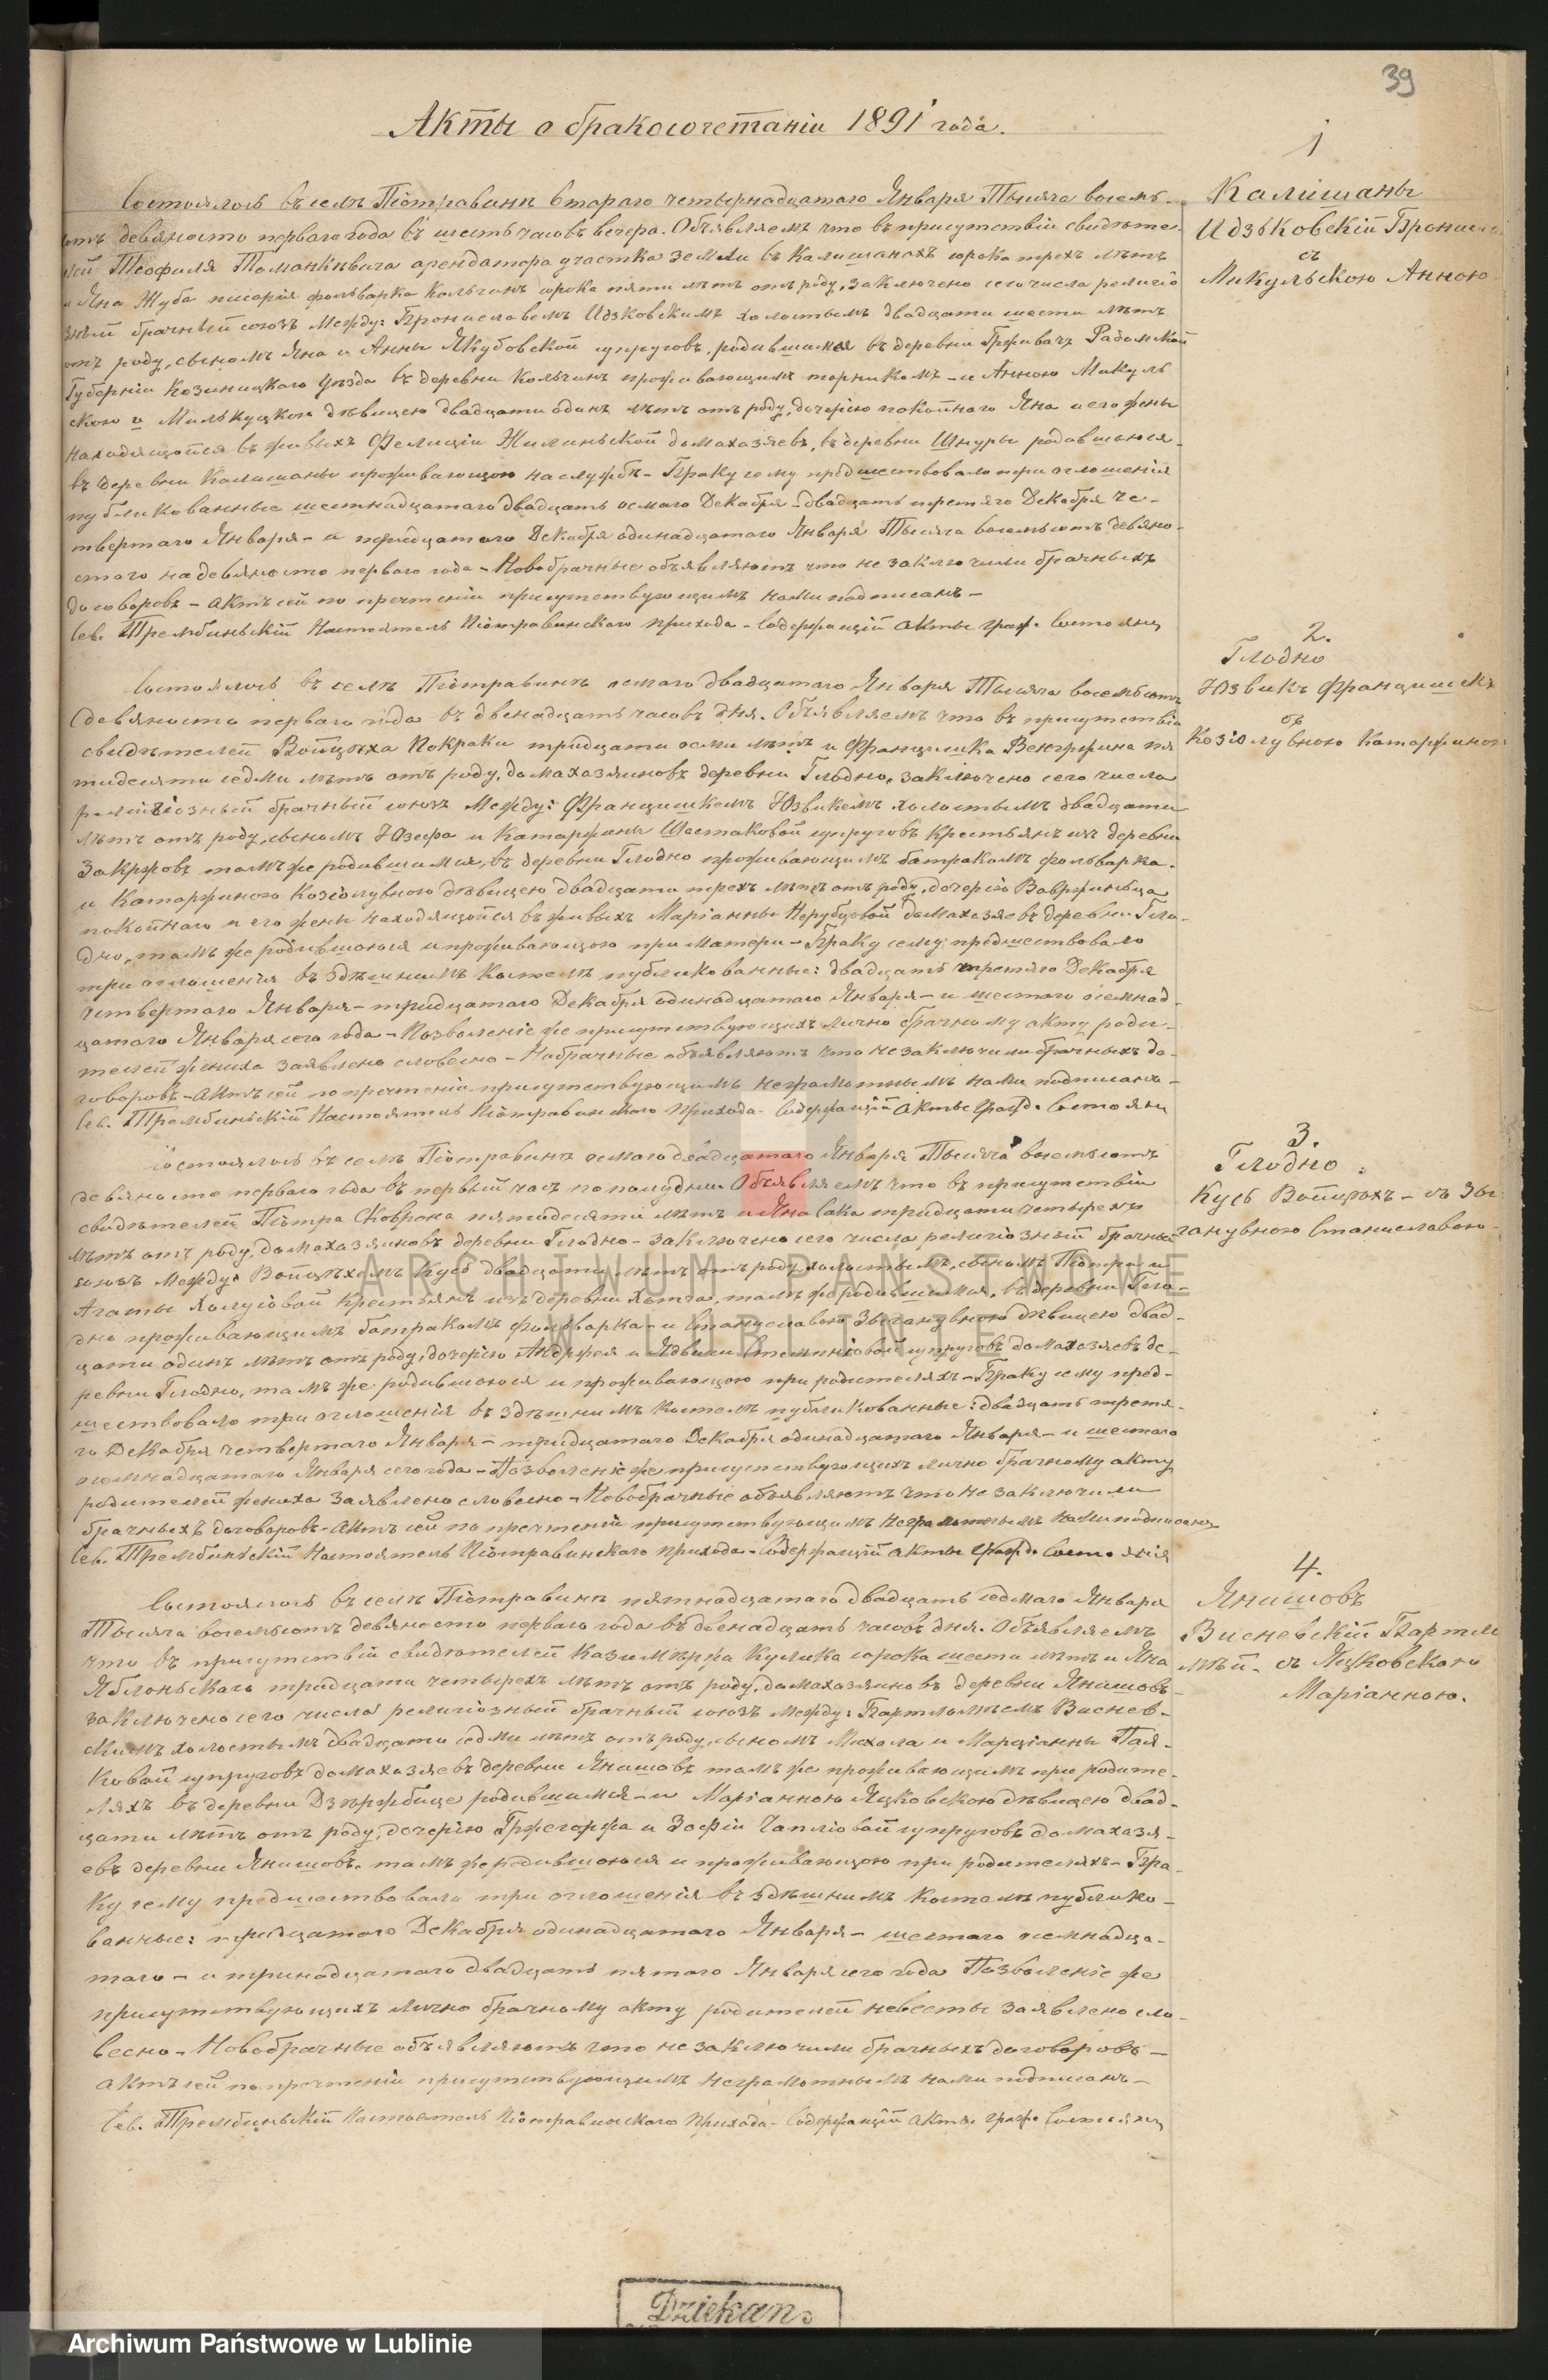 39
Акты о бракосочетаніи 1891 года.
1
Калишаны
Идзьковскій Брониславъ
съ
Микульскою Анною
Состоялось въ селѣ Піотравинѣ втораго четырнадцатаго Января Тысяча восемь-
сотъ девяносто перваго года въ шесть часовъ вечера. Объявляемъ что въ присутствіи свидѣте-
лей Теофиля Томанкѣвича арендатора участка земли въ Калишанахъ сорока трехъ лѣтъ
и Яна Жуба писаря фольварка Кольчинъ сорока пяти лѣтъ отъ роду, заключено сего числа религіо
зный брачный союзъ Между: Брониславемъ Идзковскимъ холостымъ двадцати шести лѣтъ
отъ роду, сыномъ Яна и Анны Якубовской супруговъ, родившимся въ деревни Грживачъ Радомской
Губерніи Козѣницкаго Уѣзда въ деревни Кольчинъ проживающимъ - и Анною Микуль
скою дѣвицею двадцати одинъ лѣтъ отъ роду, дочерію покойнаго Яна и его жены
находящойся въ живыхъ Фелиціи Жилиньской домахазяевъ, въ деревни Шнуры родившоюся
въ деревни Калишаны проживающою на службѣ - Браку сему предшествовало три оглошенія
публикованные шестнадцатаго двадцать осмаго Декабря - двадцать третяго Декабря че-
твертаго Января - и тридцатаго Декабря одинадцатаго Января Тысяча восемьсотъ девяно-
стаго на девяносто перваго года - Новобрачные объявляютъ что не заключили брачныхъ
договоровъ - актъ сей по прочтеніи присутствующимъ нами подписанъ -
Сев. Трембиньскій Настоятель Піотравинскаго прихода - Содержащій акты граж. Состоянія
2.
Глодно
Юзвикъ Францишекъ
съ
Козіолувною Катаржиною
Состоялось въ селѣ Піотравинѣ осмаго двадцатаго Января Тысяча восемьсотъ
девяносто перваго года въ двенадцать часовъ дня. Объявляемъ что въ присутствіи
свидѣтелей Войцѣха Покраки тридцати осми лѣтъ и Францишка Венгржина пя
тидесяти седми лѣтъ отъ роду, домахазяиновъ деревни Глодно, заключено сего числа
религіозный брачный союзъ Между: Францишкемъ Юзвикемъ холостымъ двадцати
лѣтъ отъ роду, сыномъ Юзефа и Катаржины Шестаковой супруговъ крестьянъ изъ деревни
Закржовъ тамъ же родившимся, въ деревни Глодно проживающимъ батракомъ фольварка.
и Катаржиною Козіолувною дѣвицею двадцати трехъ лѣтъ отъ роду, дочерію Вавржиньца
покойнаго и его жены находящойся въ живыхъ Маріанны домахазяевъ деревни Гло-
дно, тамъ же родившоюся и проживающою при Матери - Браку сему предшествовало
три оглошенія въ здѣшнимъ костелѣ публикованные: двадцать третяго Декабря
четвертаго Января - тридцатаго Декабря одинадцатаго Января - и шестаго осемнад-
цатаго Января сего года - Позволеніе же присутствующихъ лично брачному акту роди-
телей жениха заявлено словесно - Нобрачные объявляютъ что не заключили брачныхъ до-
говоровъ - актъ сей по прочтеніи присутствующимъ неграмотнымъ нами подписанъ -
Сев. Трембиньскій Настоятель Піотравинскаго прихода - Содержащій акты Гражд. Состояни
3.
Глодно
Кусь Войцѣхъ - съ Зы
ганувною Станиславою
Состоялось въ селѣ Піотравинѣ осмаго двадцатаго Января Тысяча восемьсотъ
девяносто перваго года въ первый часъ по полудни Объявляемъ что въ присутствіи
свидѣтелей Піотра Сковрона пятидесяти лѣтъ и Яна Сака тридцати четырехъ
лѣтъ отъ роду, домахазяиновъ деревни Глодно - заключено сего числа религіозный брачный
союзъ Между: Войцѣхемъ Кусь двадцати лѣтъ отъ роду холостымъ, сыномъ Піотра и
Агаты крестьянъ изъ деревни тамъ же родившимся, въ деревни Гло-
дно проживающимъ батракомъ фольварка - и Станиславою Зыганувною дѣвицею двад-
цати одинъ лѣтъ отъ роду, дочерію Андржея и Ядвиги супруговъ домахазяевъ де-
ревни Глодно, тамъ же родившоюся и проживающою при родителяхъ - Браку сему пред-
шествовало три оглошенія въ здѣшнимъ костелѣ публикованные: двадцать третя-
го Декабря четвертаго Января - тридцатаго Декабря одинадцатаго Января - и шестаго
осемнадцатаго Января сего года - Позволеніе же присутствующихъ лично брачному акту
родителей жениха заявлено словесно - Новобрачные объявляютъ что не заключили
брачныхъ договоровъ - актъ сей по прочтеніи присутствующимъ неграмотнымъ нами подписанъ
Сев. Трембиньскій Настоятель Піотравинскаго прихода - Содержащій акты Гражд. Состоянія
4.
Янишовъ
Висневскій Бартло
мѣй - съ Яцковскою
Маріанною.
Состоялось въ селѣ Піотравинѣ пятнадцатаго двадцать седмаго Января
Тысяча восемьсотъ девяносто перваго года въ двенадцать часовъ дня. Объявляемъ
что въ присутствіи свидѣтелей Казимѣржа Кулика сорока шести лѣтъ и Яна
Яблоньскаго тридцати четырехъ лѣтъ отъ роду, домахазяиновъ деревни Янишовъ
заключено сего числа религіозный брачный союзъ между: Бартломѣемъ Виснев-
скимъ холостымъ двадцати седми лѣтъ отъ роду, сыномъ Михала и Марціанны Пая-
ковой супруговъ домахазяевъ деревни Янишовъ тамъ же проживающимъ при родите-
ляхъ въ деревни Дзѣржбице родившимся - и Маріанною Яцковскою дѣвицею двад-
цати лѣтъ отъ роду, дочерію Гржегоржа и Зофіи Чапліовой супруговъ домахазя-
евъ деревни Янишовъ, тамъ же родившоюся и проживающою при родителяхъ - Бра-
ку сему предшествовали три оглошенія въ здѣшнимъ костелѣ публико-
ванные: тридцатаго Декабря одинадцатаго Января - шестаго осемнадца-
таго - и тринадцатаго двадцать пятаго Января сего года Позволеніе же
присутствующихъ лично брачному акту родителей невесты заявлено сло-
весно - Новобрачные объявляютъ что не заключили брачныхъ договоровъ -
актъ сей по прочтеніи присутствующимъ неграмотнымъ нами подписанъ -
Сев. Трембиньскій Настоятель Піотравинскаго прихода - Содержащій акты граж. Состояни
ARCHIWUM PAŃSTWOWE
W LUBLINIE
Dziekan
Archiwum Państwowe w Lublinie